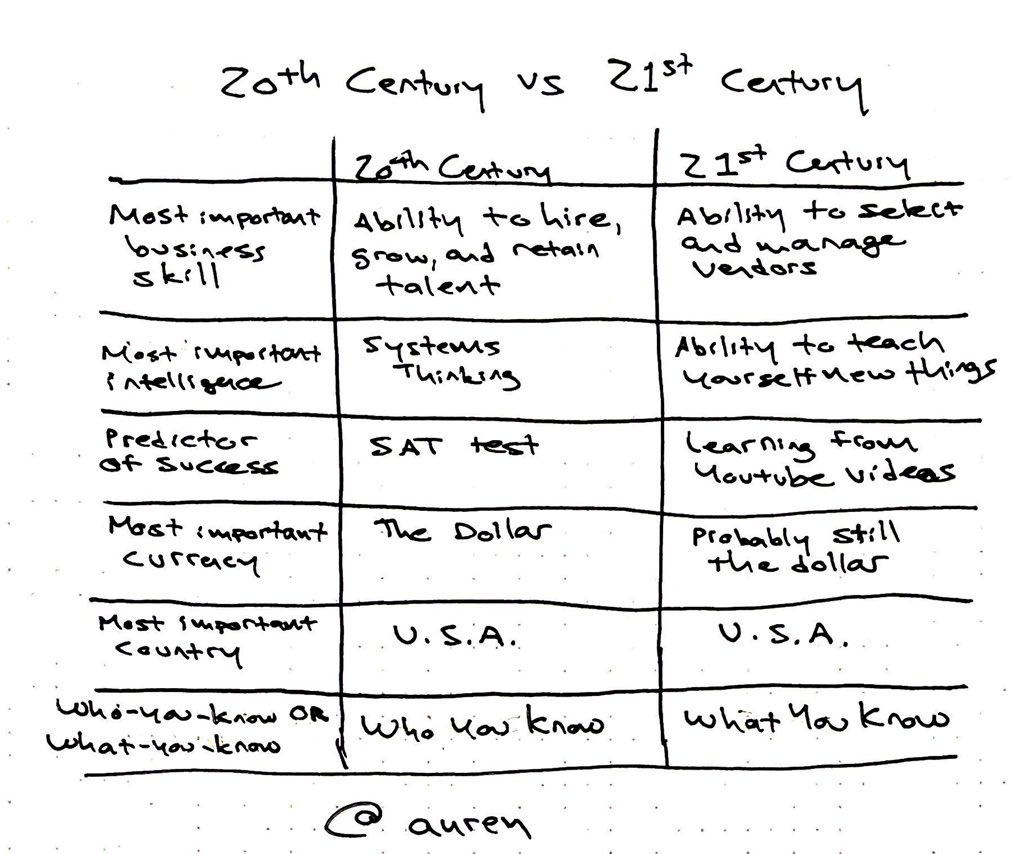 20th Century vs 21st Century
20th Century
21st Century
Most important
business
skill
Ability to hire,
grow, and retain
talent
Ability to select
and manage
vendors
Most important
intelligence
Systems
Thinking
Ability to teach
yourself new things
Predictor
of Success
SAT test
Learning from
Youtube videos
Most important
currency
The Dollar
Probably still
the dollar
Most important
Country
U.S.A.
U.S.A.
Who-you-know OR
What-you-know
Who You Know
What You Know
@auren